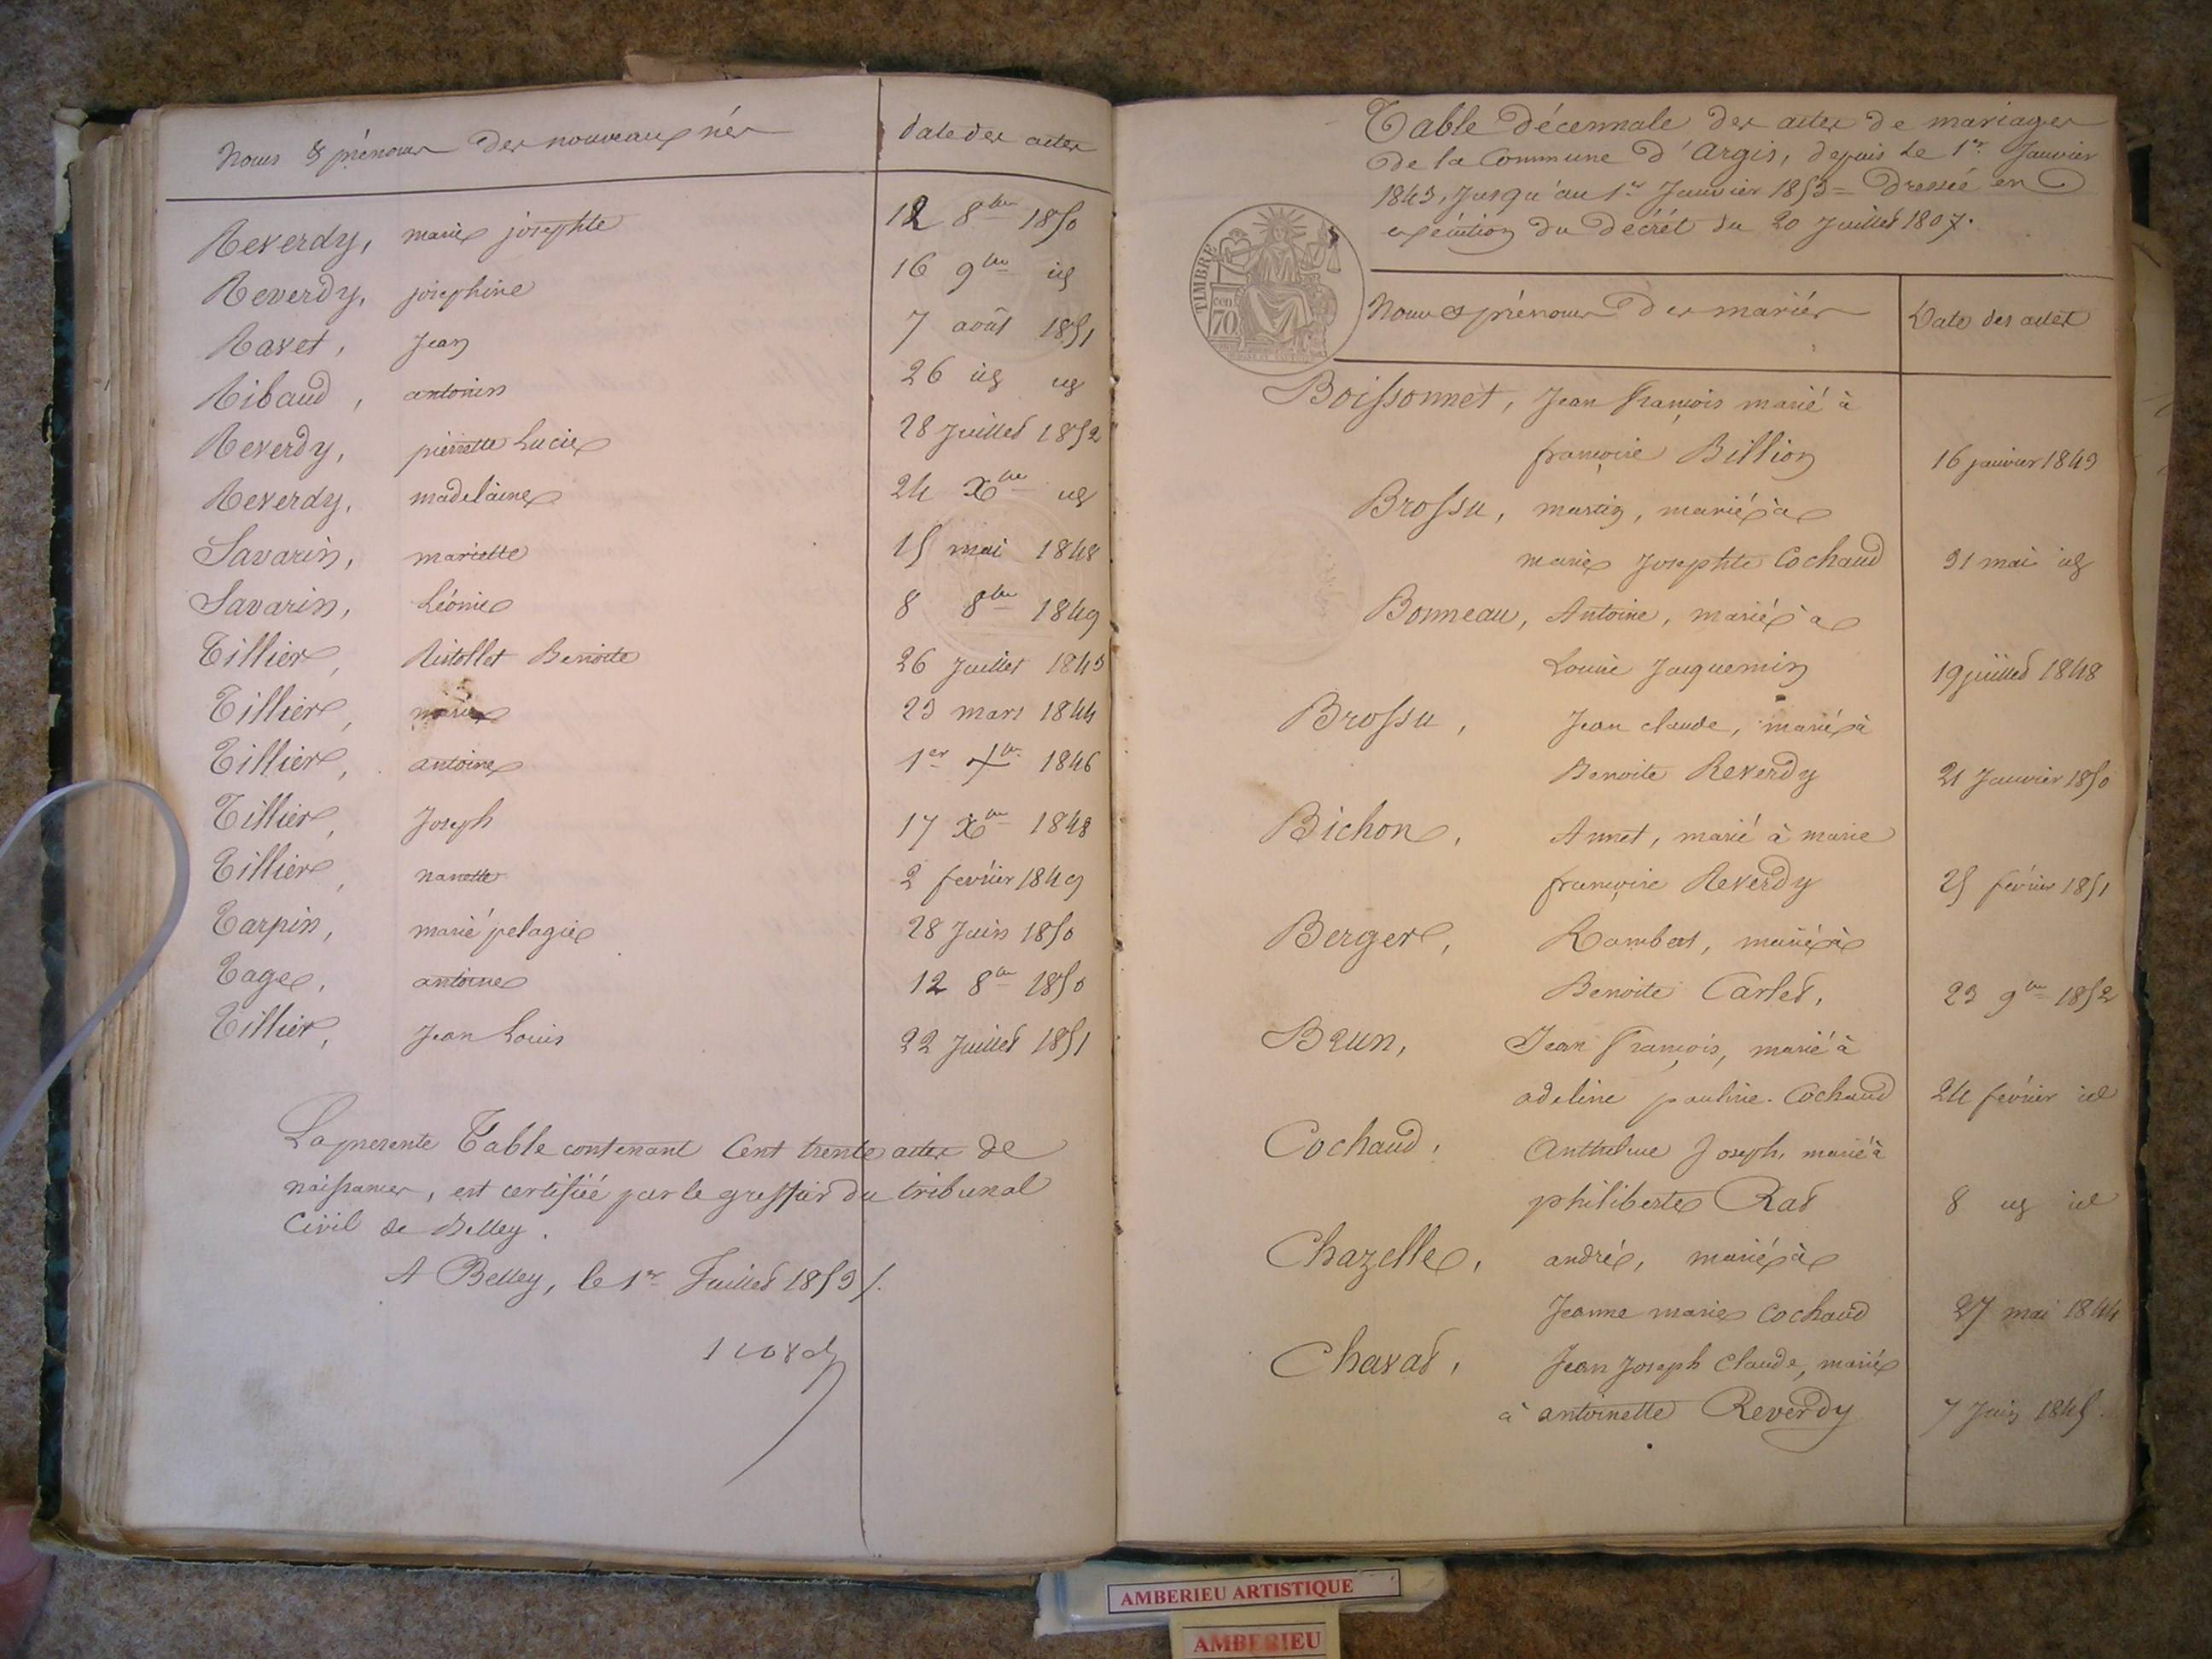 Noms & prénoms des nouveaux nés date des actes
Reverdy, marie josephte 12 8bre 1850
Reverdy, joséphine 16 9bre id
Ravet, Jean 7 août 1851
Ribaud, antonin 26 id id
Reverdy, pierrette Lucie 28 Juillet 1852
Reverdy, madelaine 24 Xbre id
Savarin, mariette 15 mai 1848
Savarin, Léonie 8 8bre 1849
Tillier, Benoite 26 Juillet 1843
Tillier, marie 23 mars 1844
Tillier, antoine 1er 1846
Tillier, Joseph 17 Xbre 1848
Tillier, nanette 2 février 1849
Tarpin, marie pelagie 28 Juin 1850
Tage, antoine 12 8bre 1850
Tillier, Jean Louis 22 Juillet 1851
La presente Table contenant Cent trente actes de
naissances, est certifiée par le greffier du tribunal
Civil de Belley.
A Belley, le 1er Juillet 1853 /.
Table décennale des actes de mariages
de la Commune d'Argis, depuis le 1er Janvier
1843, Jusqu'au 1er Janvier 1853 = Dressée en
exécution du décrét du 20 Juillet 1807.
TIMBRE
70 cen
Noms & prénoms des mariés Date des actes
Boissonnet, Jean François marié à
françoise Billion 16 janvier 1843
Brossu, martin, marié à
marie Josephte Cochaud 31 mai id
Bonneau, Antoine, marié à
Louise Jacquemin 19 juillet 1848
Brossu, Jean claude, marié à
Benoite Reverdy 21 Janvier 1850
Bichon, Annet, marié à marie
françoise Reverdy 25 février 1851
Berger, Rambert, marié à
Benoite Carlet, 23 9bre 1852
Brun, Jean François, marié à
adeline pauline Cochaud 24 février id
Cochaud, Anthelme Joseph, marié à
philiberte Rat 8 id id
Chazelle, andré, marié à
Jeanne marie Cochaud 27 mai 1844
Chavat, Jean Joseph Claude, marié
à antoinette Reverdy 7 Juin 1845.
AMBERIEU ARTISTIQUE
AMBERIEU